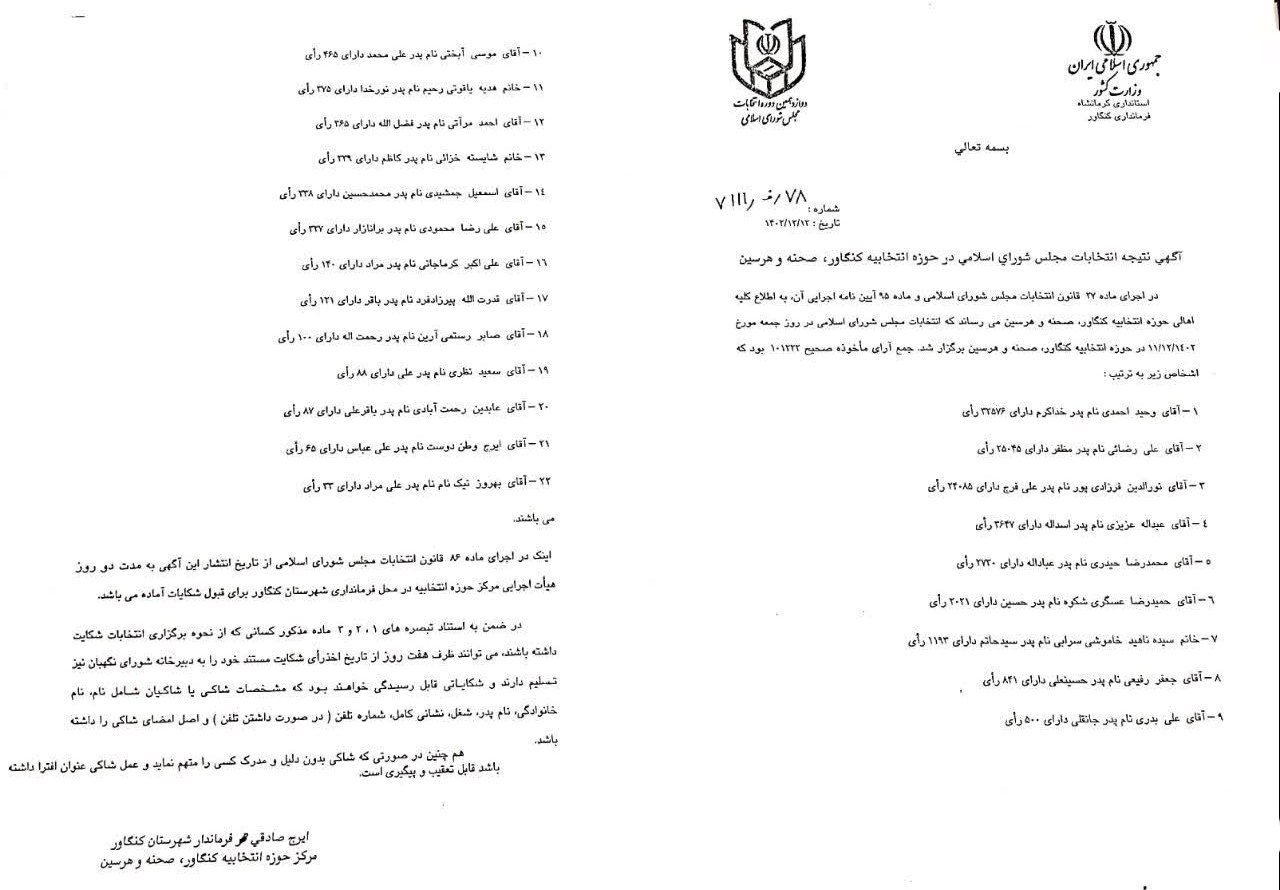 جمهوری اسلامی ایران
وزارت کشور
استانداری کرمانشاه
فرمانداری کنگاور
دوازدهمین دوره انتخابات
مجلس شورای اسلامی
بسمه تعالي
شماره :
تاریخ : ۱۴۰۲/۱۲/۱۲
آگهي نتیجه انتخابات مجلس شوراي اسلامي در حوزه انتخابیه کنگاور، صحنه و هرسین
در اجرای ماده ۲۷ قانون انتخابات مجلس شورای اسلامی و ماده ۹۵ آیین نامه اجرایی آن، به اطلاع کلیه
اهالی حوزه انتخابیه کنگاور، صحنه و هرسین می رساند که انتخابات مجلس شورای اسلامی در روز جمعه مورخ
۱۱/۱۲/۱۴۰۲ در حوزه انتخابیه کنگاور، صحنه و هرسین برگزار شد. جمع آرای مأخوذه صحیح ۱۰۱۲۲۲ بود که
اشخاص زیر به ترتیب :
۱ – آقای وحید احمدی نام پدر خداکرم دارای ۳۲۵۷۶ رأی
۲ – آقای علی رضائی نام پدر مظفر دارای ۲۵۰۴۵ رأی
۳ – آقای نورالدین فرزادی پور نام پدر علی فرج دارای ۲۴۰۸۵ رأی
۴ – آقای عبداله عزیزی نام پدر اسداله دارای ۳۶۴۷ رأی
۵ – آقای محمدرضا حیدری نام پدر عباداله دارای ۲۷۲۰ رأی
۶ – آقای حمیدرضا عسگری شکوه نام پدر حسین دارای ۲۰۲۱ رأی
۷ – خانم سیده ناهید خاموشی سرابی نام پدر سیدحاتم دارای ۱۱۹۳ رأی
۸ – آقای جعفر رفیعی نام پدر حسینعلی دارای ۸۴۱ رأی
۹ – آقای علی بدری نام پدر جانقلی دارای ۵۰۰ رأی
۱۰ – آقای موسی آبختی نام پدر علی محمد دارای ۴۶۵ رأی
۱۱ – خانم هدیه یاقوتی رحیم نام پدر نورخدا دارای ۳۷۵ رأی
۱۲ – آقای احمد مرآتی نام پدر فضل الله دارای ۳۶۵ رأی
۱۳ – خانم شایسته خزائی نام پدر کاظم دارای ۳۳۹ رأی
۱۴ – آقای اسمعیل جمشیدی نام پدر محمدحسین دارای ۳۳۸ رأی
۱۵ – آقای علی رضا محمودی نام پدر برانازار دارای ۳۲۷ رأی
۱۶ – آقای علی اکبر کرماجانی نام پدر مراد دارای ۱۴۰ رأی
۱۷ – آقای قدرت الله پیرزادفرد نام پدر باقر دارای ۱۲۱ رأی
۱۸ – آقای صابر رستمی آرین نام پدر رحمت اله دارای ۱۰۰ رأی
۱۹ – آقای سعید نظری نام پدر علی دارای ۸۸ رأی
۲۰ – آقای عابدین رحمت آبادی نام پدر باقرعلی دارای ۸۷ رأی
۲۱ – آقای ایرج وطن دوست نام پدر علی عباس دارای ۶۵ رأی
۲۲ – آقای بهروز نیک نام نام پدر علی مراد دارای ۳۳ رأی
می باشند.
اینک در اجرای ماده ۸۶ قانون انتخابات مجلس شورای اسلامی از تاریخ انتشار این آگهی به مدت دو روز
هیأت اجرایی مرکز حوزه انتخابیه در محل فرمانداری شهرستان کنگاور برای قبول شکایات آماده می باشد.
در ضمن به استناد تبصره های ۱ ، ۲ و ۳ ماده مذکور کسانی که از نحوه برگزاری انتخابات شکایت
داشته باشند، می توانند ظرف هفت روز از تاریخ اخذرأی شکایت مستند خود را به دبیرخانه شورای نگهبان نیز
تسلیم دارند و شکایاتی قابل رسیدگی خواهند بود که مشخصات شاکی یا شاکیان شامل نام، نام
خانوادگی، نام پدر، شغل، نشانی کامل، شماره تلفن ( در صورت داشتن تلفن ) و اصل امضای شاکی را داشته
باشد.
هم چنین در صورتی که شاکی بدون دلیل و مدرک کسی را متهم نماید و عمل شاکی عنوان افترا داشته
باشد قابل تعقیب و پیگیری است.
ایرج صادقي فرماندار شهرستان کنگاور
مرکز حوزه انتخابیه کنگاور، صحنه و هرسین